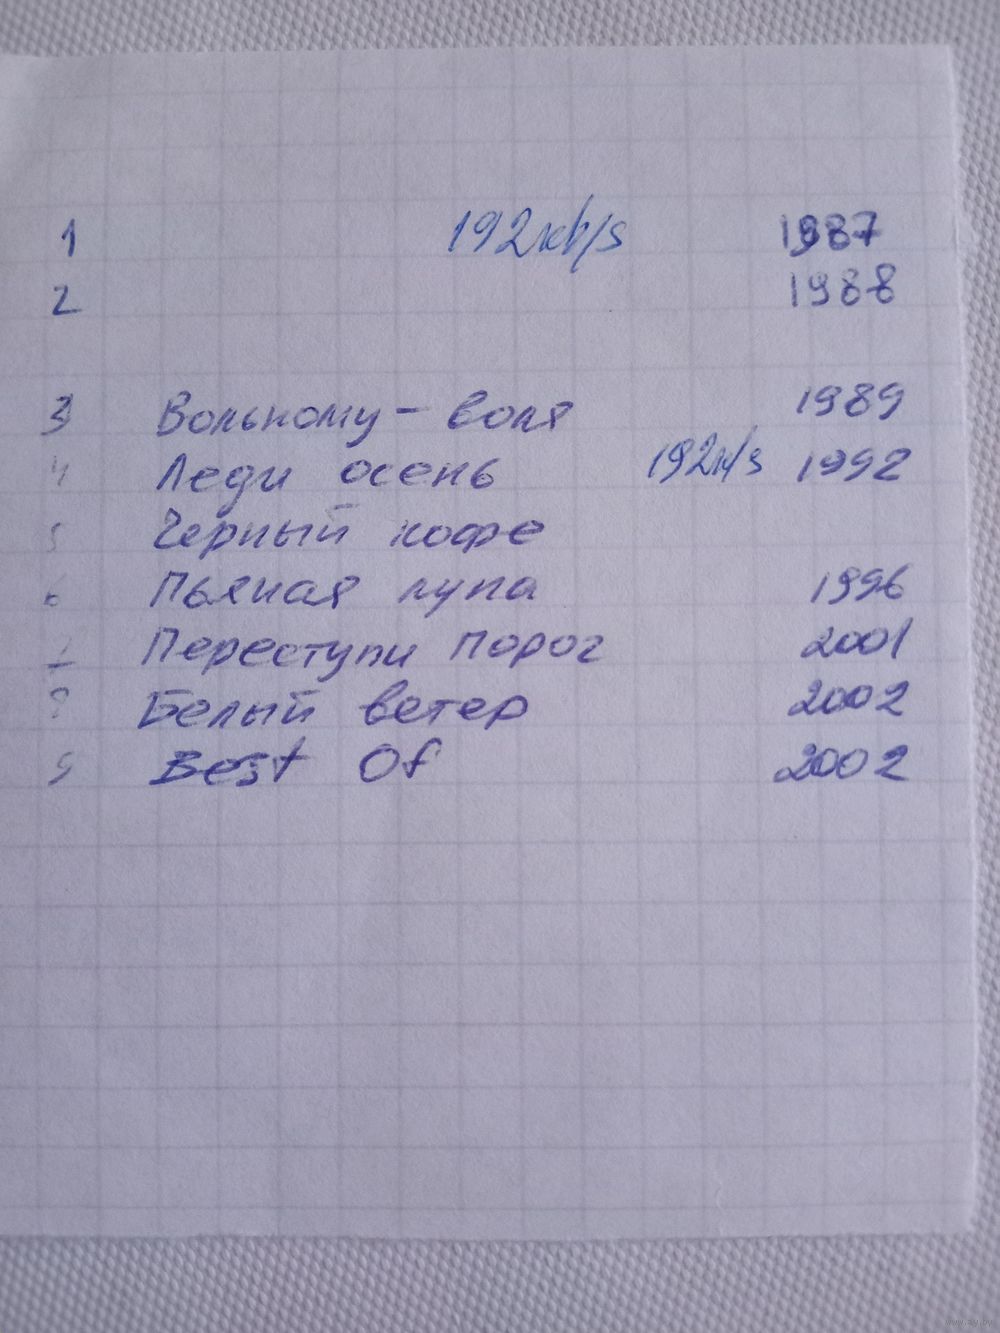 1 192kb/s 1987
2 1988
3 Вольному - воля 1989
4 Леди осень 192k/s 1992
5 Черный кофе
6 Пьяная луна 1996
7 Переступи порог 2001
8 Белый ветер 2002
9 Best Of 2002